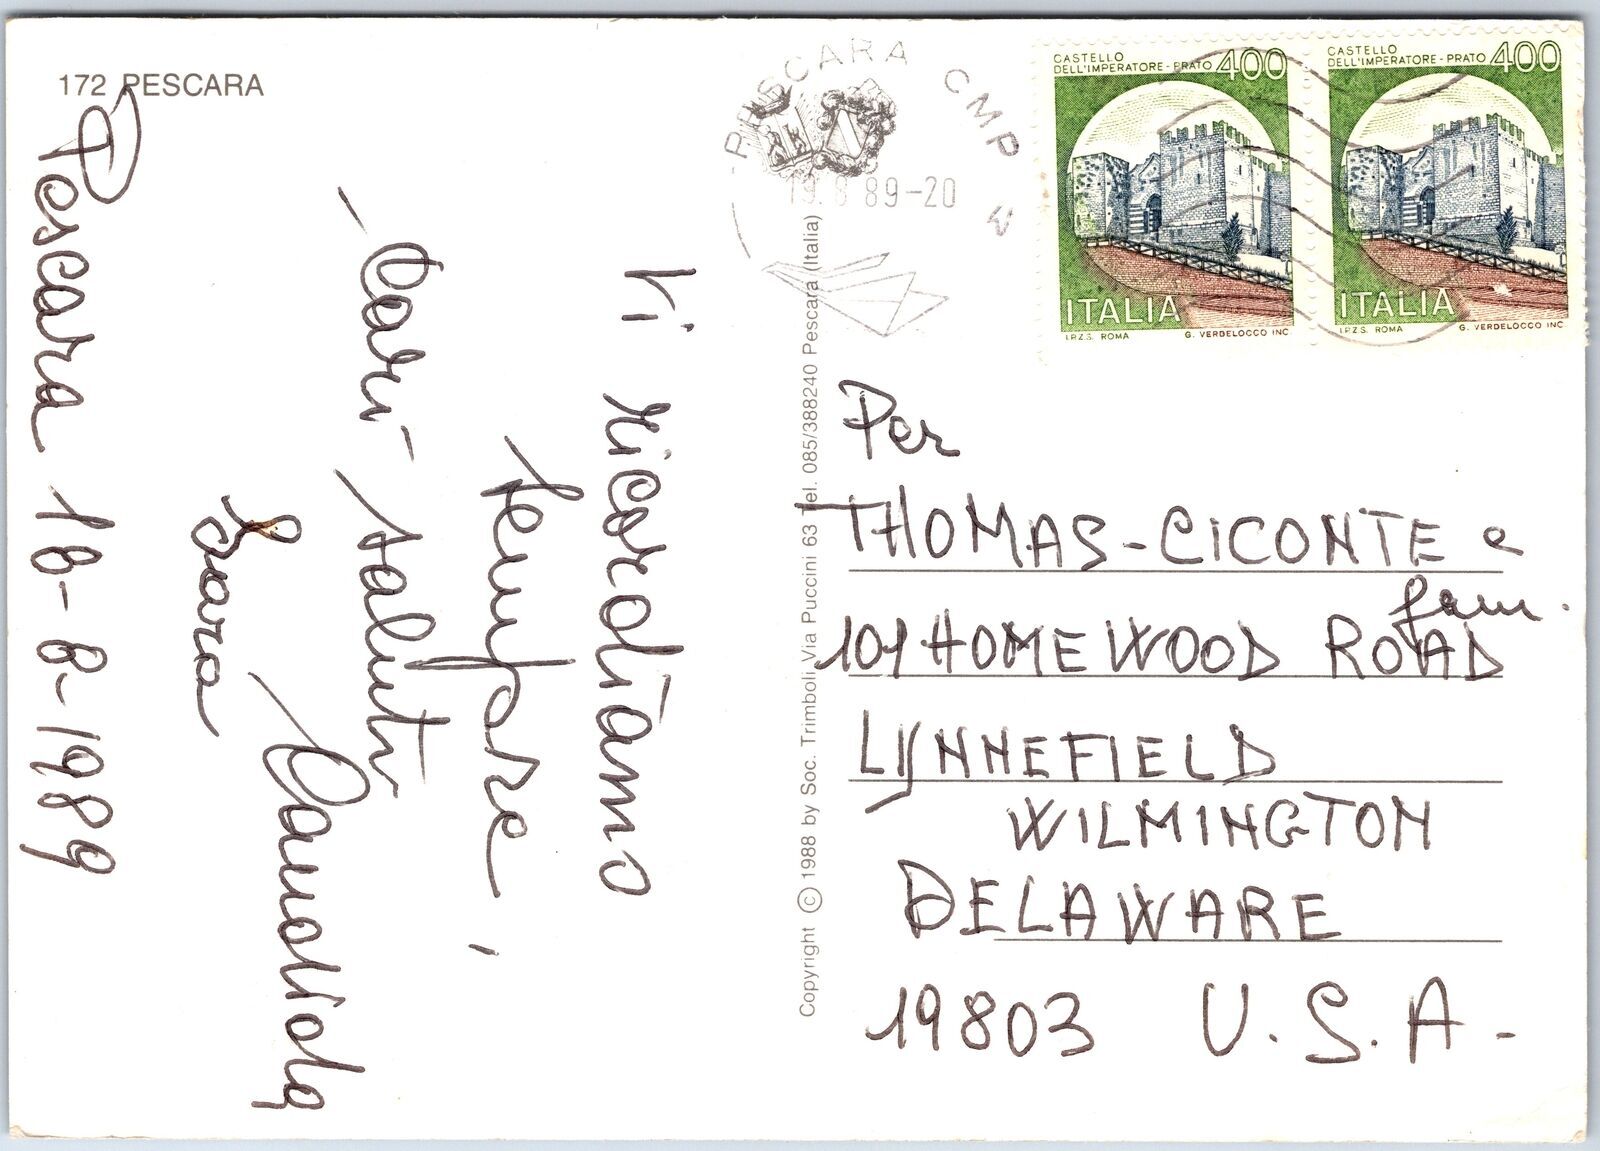 172 PESCARA
Pescara 18-8-1989
Vi ricordiamo
sempre,
Cari saluti
Sara
PESCARA CMP
19. 8 89-20
CASTELLO
DELL'IMPERATORE-PRATO 400
ITALIA
I.P.Z.S. ROMA G. VERDELOCCO INC.
CASTELLO
DELL'IMPERATORE-PRATO 400
ITALIA
I.P.Z.S. ROMA G. VERDELOCCO INC.
Copyright © 1988 by Soc. Trimboli Via Puccini 63 Tel. 085/388240 Pescara (Italia)
Per
THOMAS-CICONTE e
fam.
101 HOMEWOOD ROAD
LYNNEFIELD
WILMINGTON
DELAWARE
19803 U.S.A-